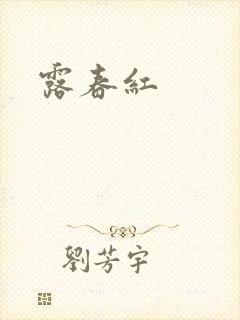 露春紅
劉芳宇